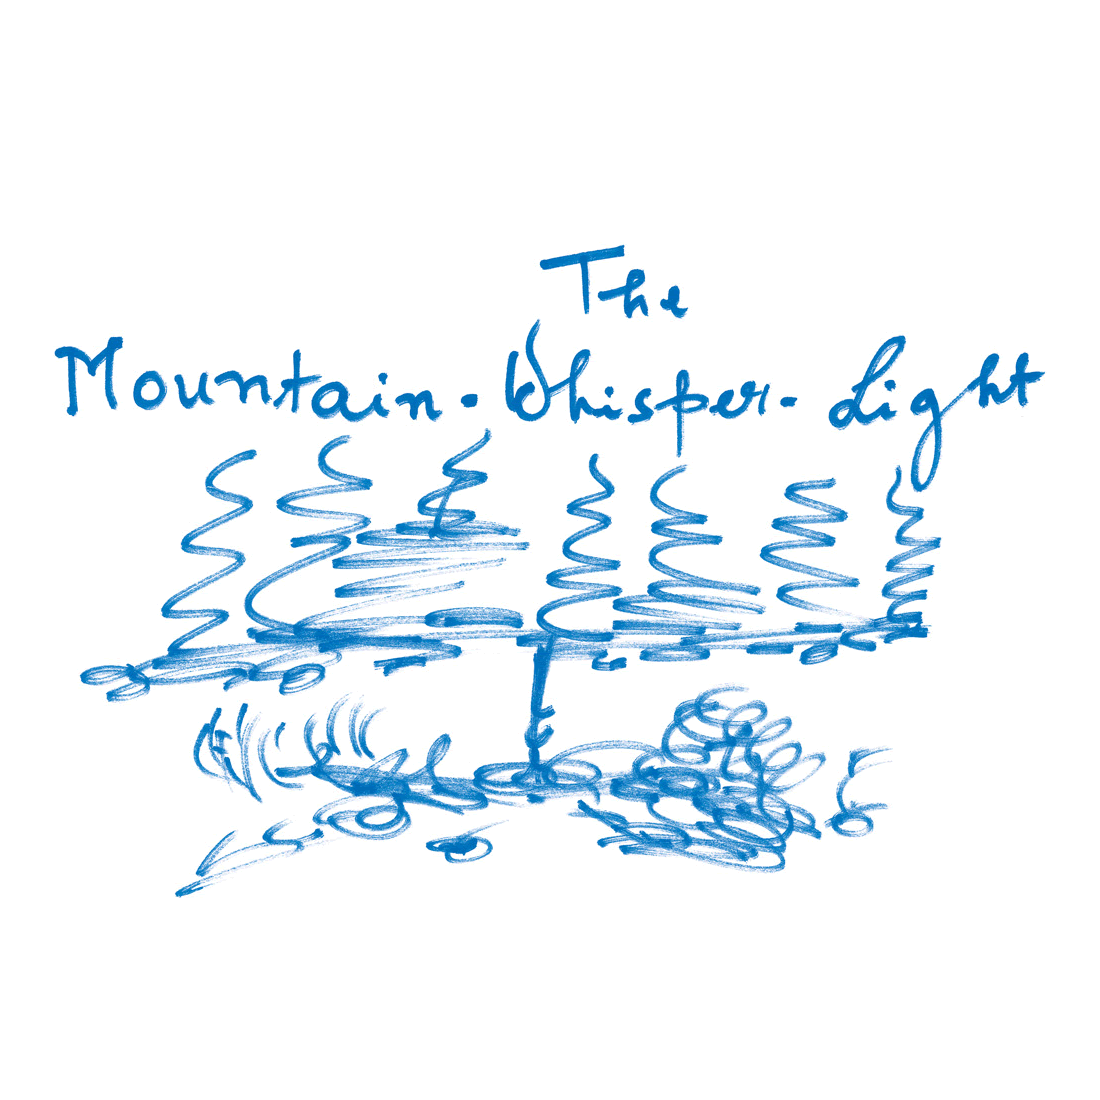 The
Mountain-Whisper-Light